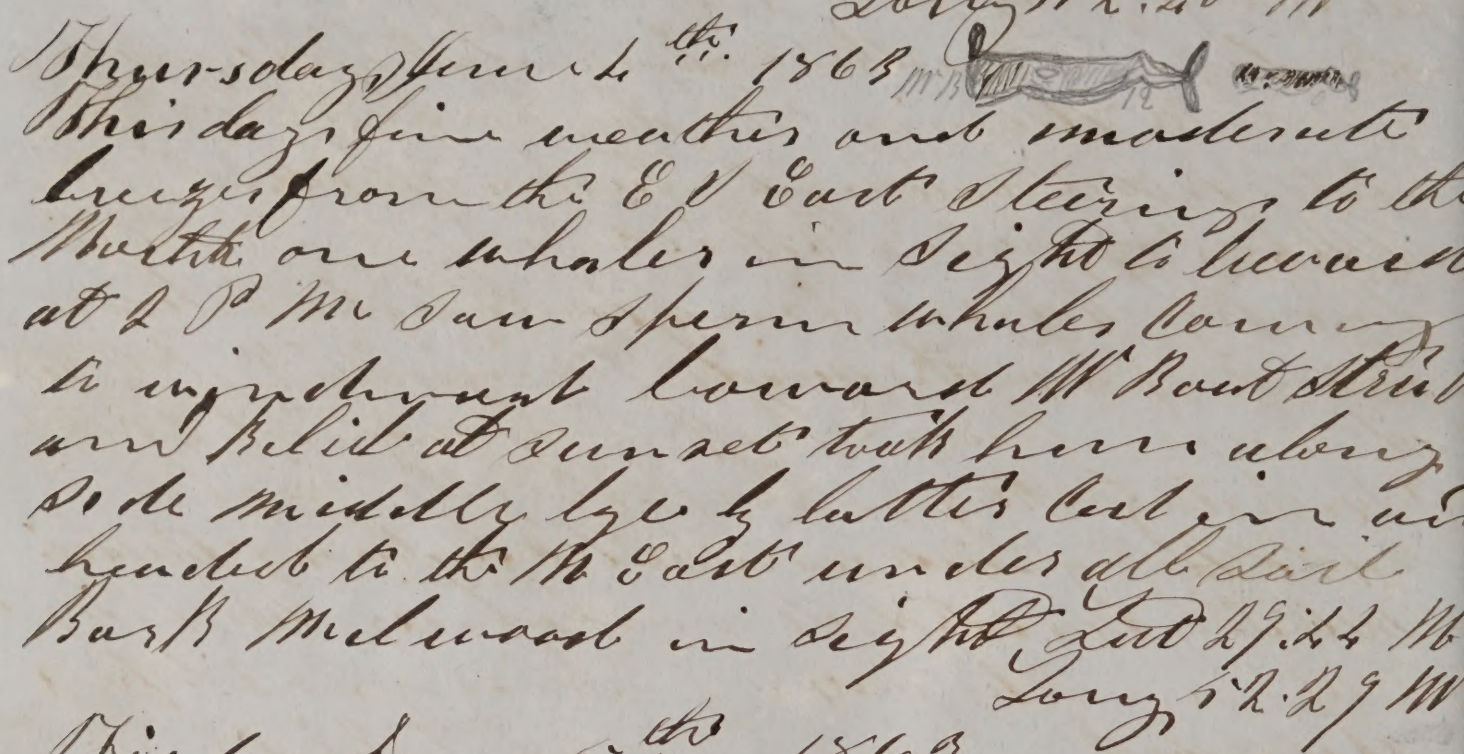 Thursday June 4th 1863 WB 12
This day fine weather and moderate
breezes from the E S East Steering to the
North one whaler in sight to leward
at 2 P M Saw Sperm whales Coming
to windward loward W Boat Struck
and Kelid at sunset took him along
side middle lyer by latter Cut in
headed to the N East under all Sail
Bark Melwood in sight Lat 29.44 N
Long 52.29 W
th 1863